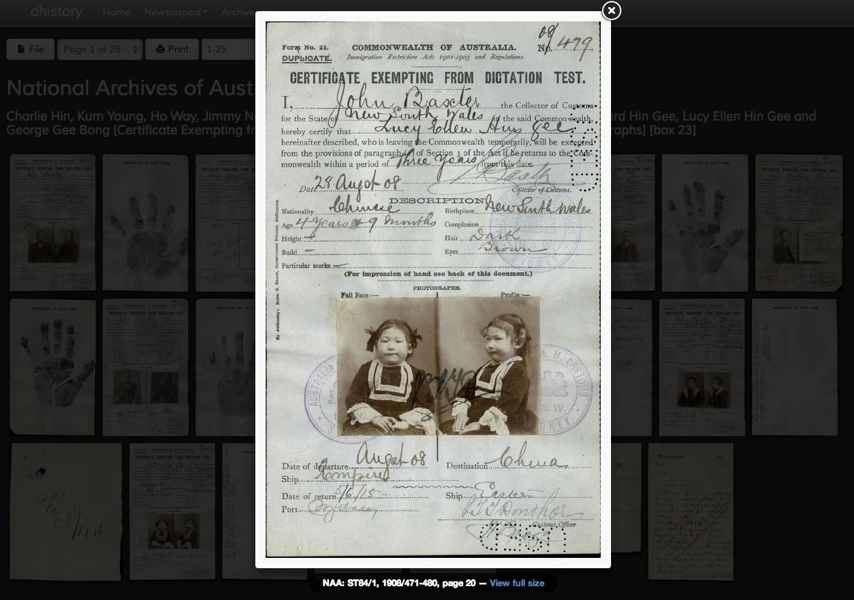 dhistory Home Newspapers Archives
File Page 1 of 25 Print 1-25
National Archives of Aust
Charlie Hin, Kum Young, Ho Way, Jimmy N
rd Hin Gee, Lucy Ellen Hin Gee and
George Gee Bong [Certificate Exempting fr
aphs] [box 23]
Form No. 21.
COMMONWEALTH OF AUSTRALIA.
No. 08/499
DUPLICATE.
Immigration Restriction Acts 1901-1905 and Regulations.
CERTIFICATE EXEMPTING FROM DICTATION TEST.
I, John Baxter the Collector of Customs
for the State of New South Wales in the said Commonwealth,
hereby certify that Lucy Ellen Hin Gee
hereinafter described, who is leaving the Commonwealth temporarily, will be excepted
from the provisions of paragraph of Section 3 of the Act if he returns to the Com-
monwealth within a period of three years from this date.
Collector of Customs.
Date 29 August 08
DESCRIPTION
Nationality Chinese Birthplace New South Wales
Age 4 years & 9 months Complexion
Height Hair Dark
Build Eyes Brown
Particular marks
(For impression of hand see back of this document.)
PHOTOGRAPHS.
Full Face :— Profile :—
AUSTRALIA
H. M. CUSTOMS
Date of departure August 08 Destination China
Ship Empire
Date of return 5/6/15 Ship Eastern
Port Sydney
Customs Officer
NAA: ST84/1, 1908/471-480, page 20 — View full size